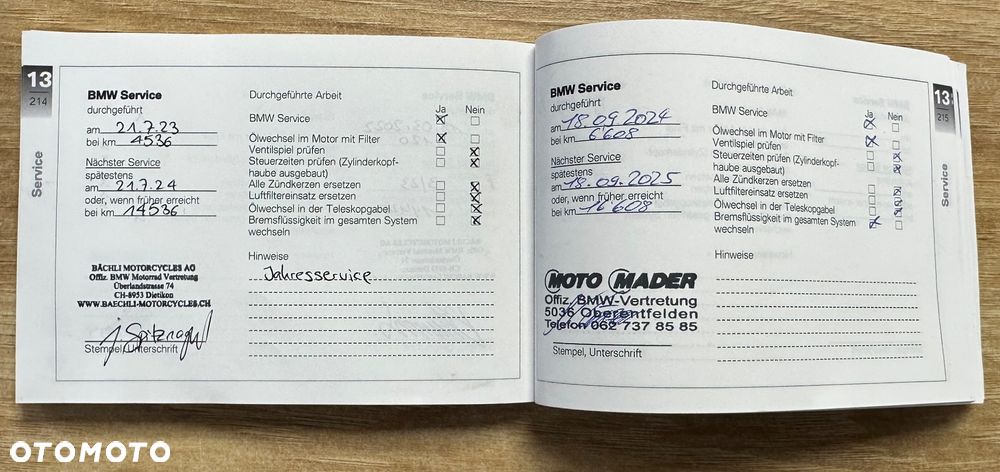 13
214
Service
BMW Service
durchgeführt
am 21.7.23
bei km 4536
Nächster Service
spätestens
am 21.7.24
oder, wenn früher erreicht
bei km 14536
BÄCHLI MOTORCYCLES AG
Offiz. BMW Motorrad Vertretung
Überlandstrasse 74
CH-8953 Dietikon
WWW.BAECHLI-MOTORCYCLES.CH
Stempel, Unterschrift
Durchgeführte Arbeit
Ja Nein
BMW Service
Ölwechsel im Motor mit Filter
Ventilspiel prüfen
Steuerzeiten prüfen (Zylinderkopf-
haube ausgebaut)
Alle Zündkerzen ersetzen
Luftfiltereinsatz ersetzen
Ölwechsel in der Teleskopgabel
Bremsflüssigkeit im gesamten System
wechseln
Hinweise
Jahresservice
BMW Service
durchgeführt
am 18.09.2024
bei km 6608
Nächster Service
spätestens
am 18.09.2025
oder, wenn früher erreicht
bei km 16608
MOTO MADER
Offiz. BMW-Vertretung
5036 Oberentfelden
Telefon 062 737 85 85
Stempel, Unterschrift
Durchgeführte Arbeit
Ja Nein
BMW Service
Ölwechsel im Motor mit Filter
Ventilspiel prüfen
Steuerzeiten prüfen (Zylinderkopf-
haube ausgebaut)
Alle Zündkerzen ersetzen
Luftfiltereinsatz ersetzen
Ölwechsel in der Teleskopgabel
Bremsflüssigkeit im gesamten System
wechseln
Hinweise
13
215
Service
OTOMOTO